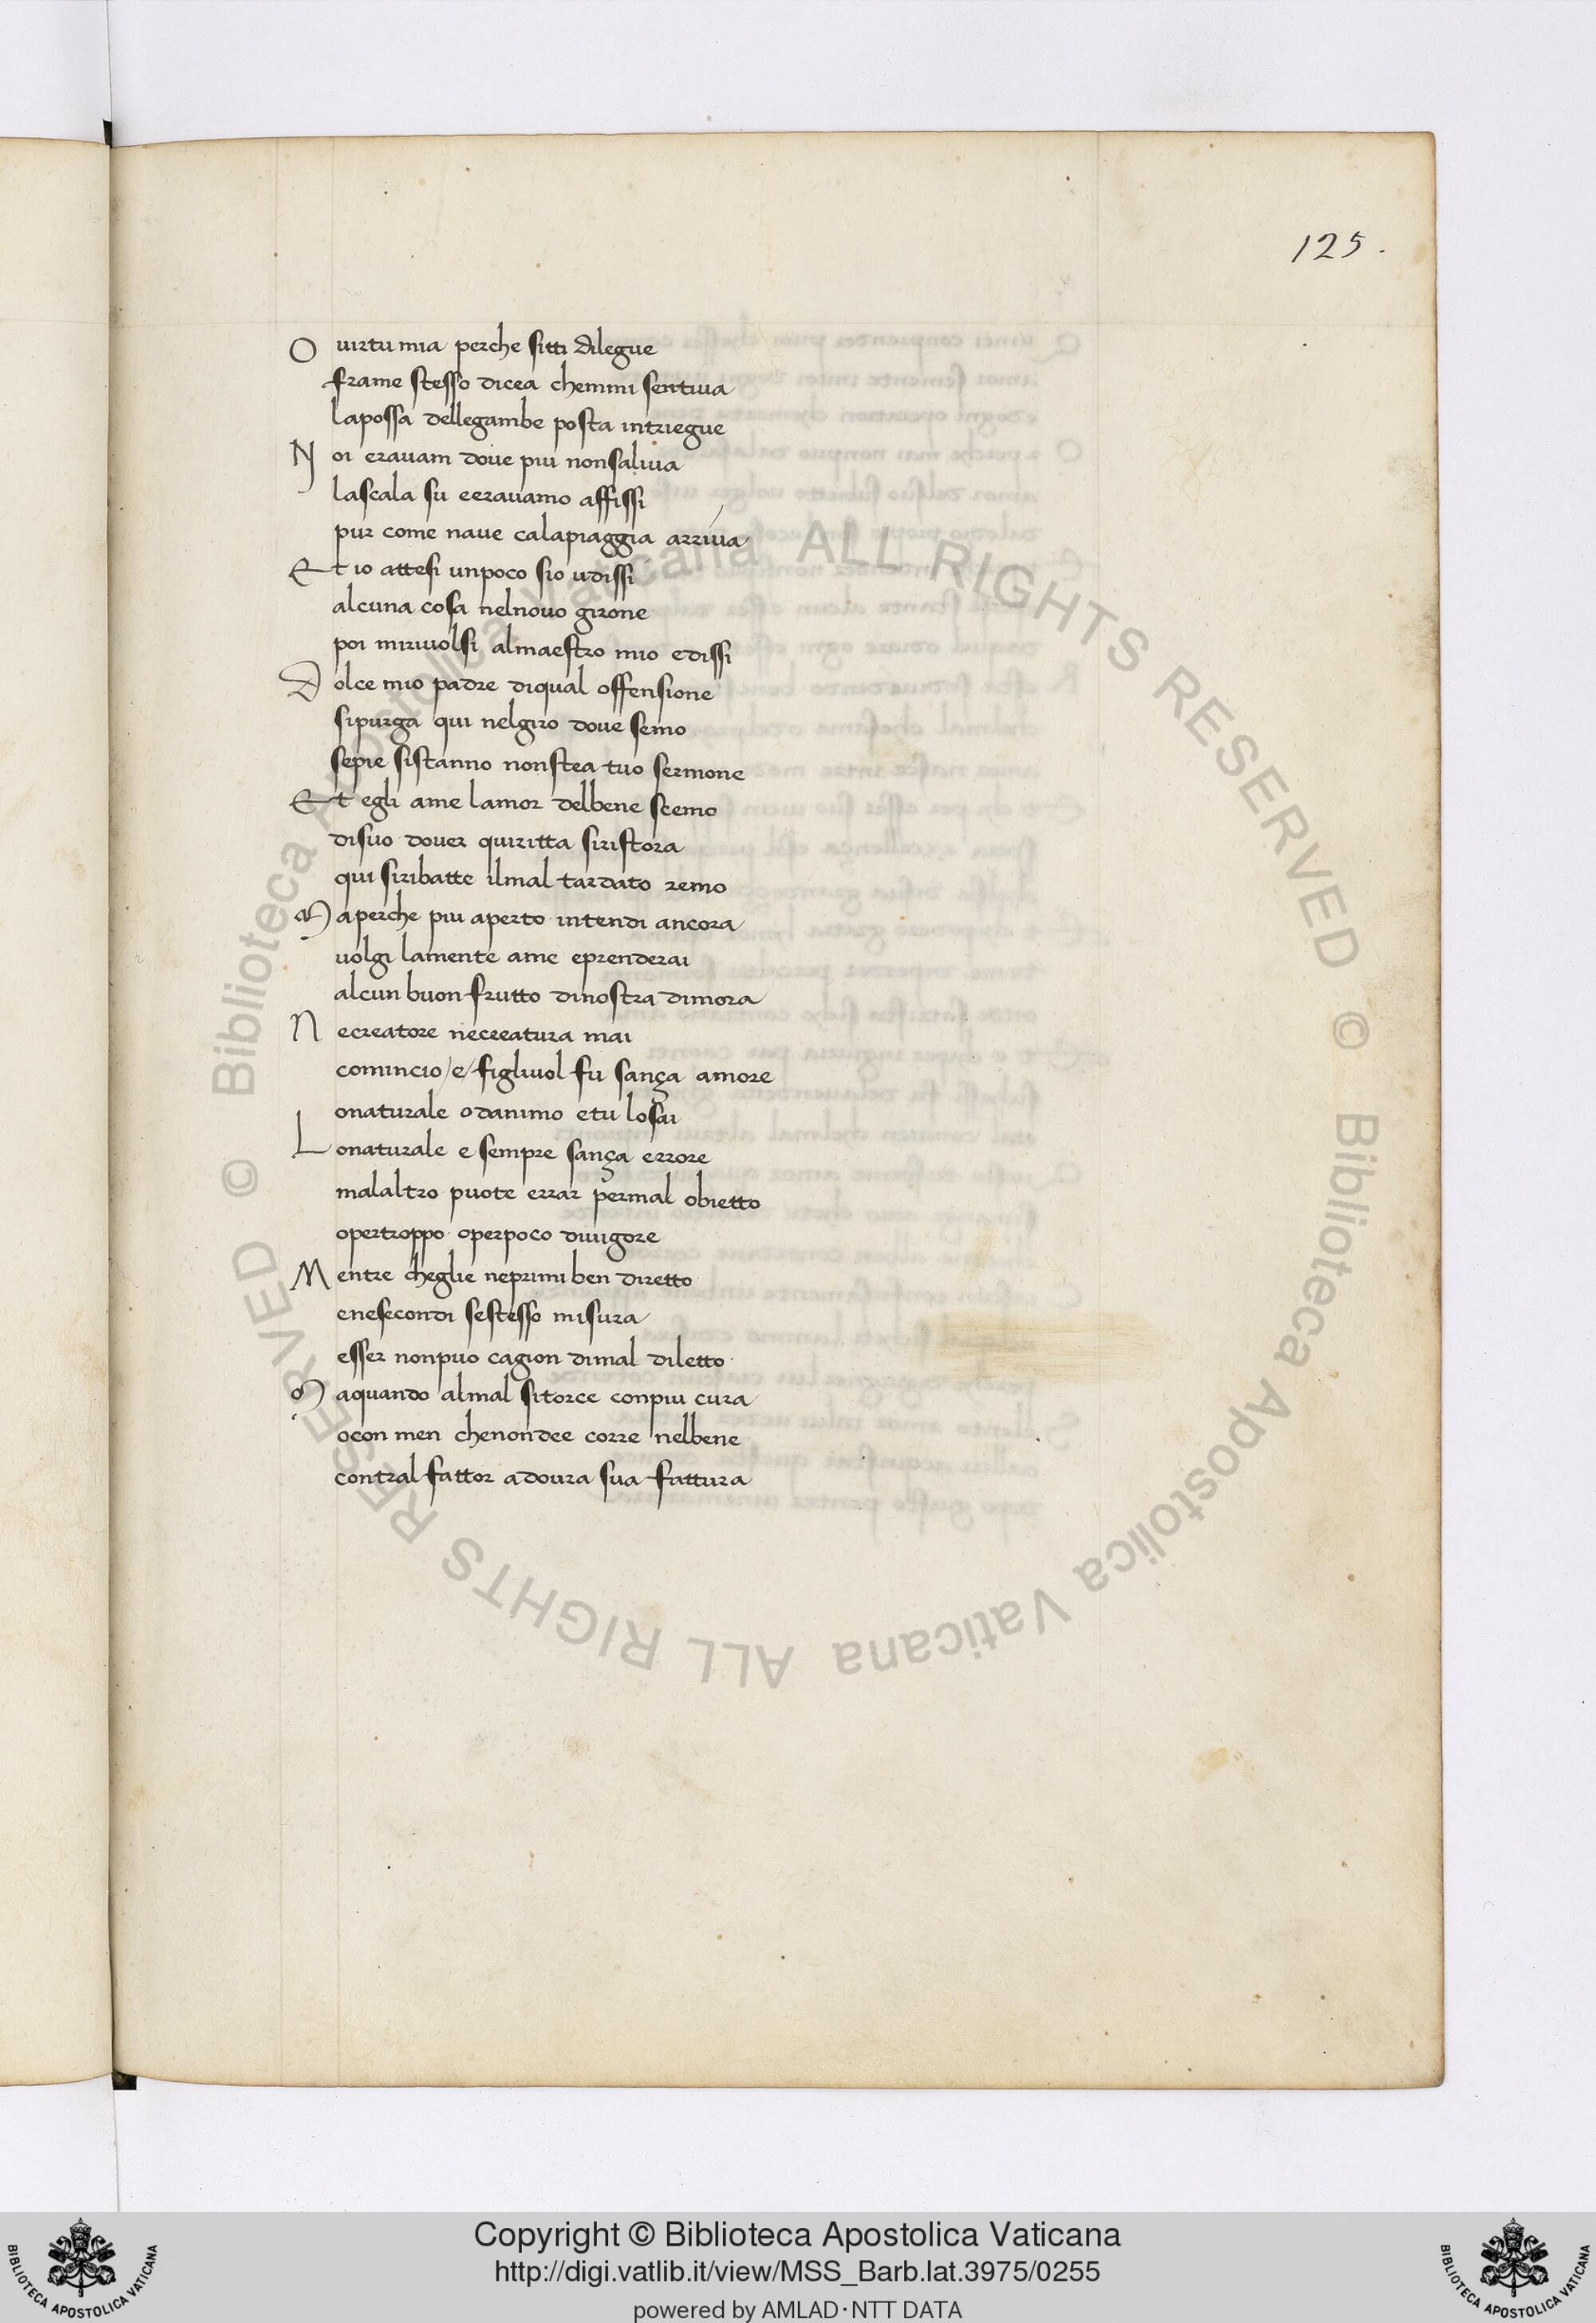 125.
O uirtu mia perche sitti dilegue
frame stesso dicea chemmi sentiua
lapossa dellegambe posta intriegue
N oi erauam doue piu nonsaliua
lascala su eerauamo affissi
pur come naue calapiaggia arriua
E t io attesi unpoco sio udissi
alcuna cosa nelnouo girone
poi miriuolsi almaestro mio edissi
D olce mio padre diqual offensione
sipurga qui nelgiro doue semo
sepie sistanno nonstea tuo sermone
E t egli ame lamor delbene scemo
disuo douer quiritta siristora
qui siribatte ilmal tardato remo
M aperche piu aperto intendi ancora
uolgi lamente ame eprenderai
alcun buon frutto dinostra dimora
N ecreatore necreatura mai
comincio/e/figliuol fu sança amore
onaturale odanimo etu losai
L onaturale e sempre sança errore
malaltro puote errar permal obietto
opertroppo operpoco diuigore
M entre cheglie neprimi ben diretto
enesecondi sestesso misura
esser nonpuo cagion dimal diletto
M aquando almal sitorce conpiu cura
ocon men chenondee corre nelbene
contral fattor adoura sua fattura
© Biblioteca Apostolica Vaticana ALL RIGHTS RESERVED
© Biblioteca Apostolica Vaticana ALL RIGHTS RESERVED
BIBLIOTECA APOSTOLICA VATICANA
Copyright © Biblioteca Apostolica Vaticana
http://digi.vatlib.it/view/MSS_Barb.lat.3975/0255
powered by AMLAD·NTT DATA
BIBLIOTECA APOSTOLICA VATICANA